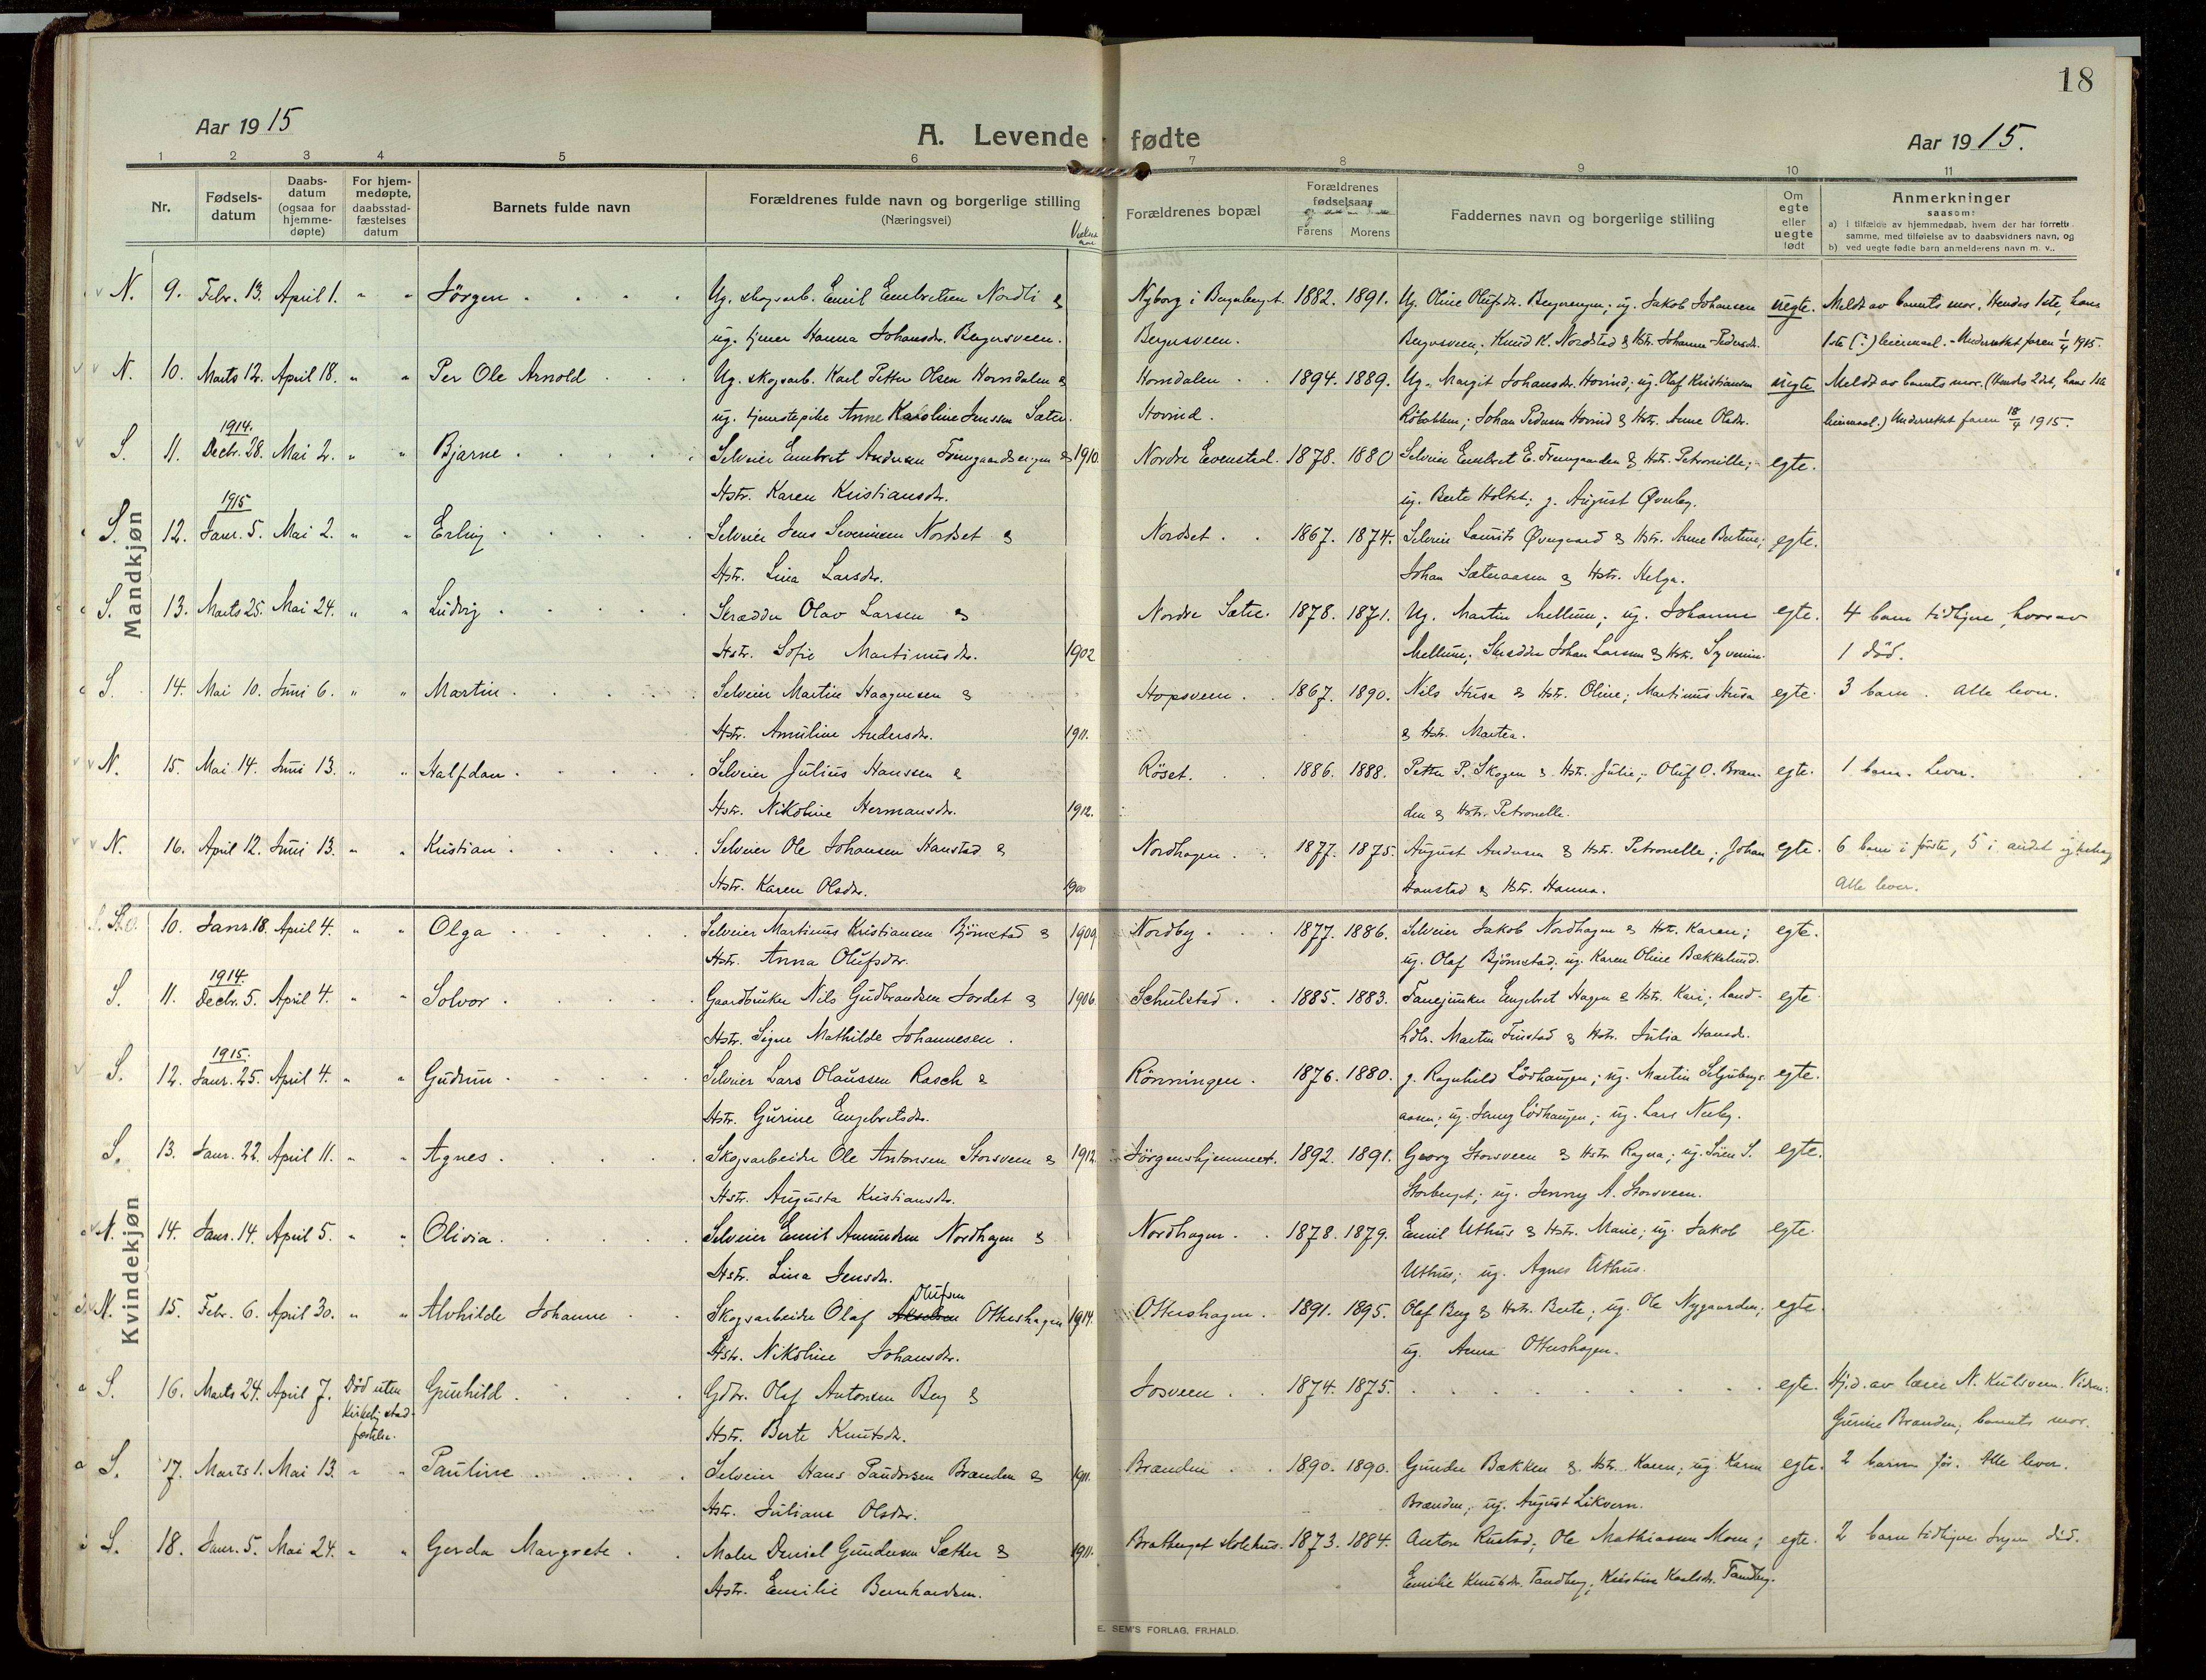 18
Aar 1915
A. Levende fødte
Aar 1915.
1 2 3 4 5 6 7 8 9 10 11
Nr.
Fødsels-datum
Daabs-datum (ogsaa for hjemme-døpte)
For hjem-medøpte, daabsstad-fæstelses datum
Barnets fulde navn
Forældrenes fulde navn og borgerlige stilling
(Næringsvei)
Forældrenes bopæl
Forældrenes fødselsaar
Farens Morens
Faddernes navn og borgerlige stilling
Om egte eller uegte født
Anmerkninger
saasom:
a) I tilfælde av hjemmedaab, hvem der har forrettet samme, med tilføielse av to daabsvidners navn, og
b) ved uegte fødte barn anmelderens navn m. v.
Mandkjøn
N. 9. Febr. 13. April 1. " " Jörgen Ug. skogsarb. Emil Embretsen Nordli & Nyborg i Bergeberget. 1882. 1891. Ug. Oline Olufsdr. ug. Jakob Johansen uegte. Meldt av barnets mor. Hendes 1ste, hans
ug. tjener Hanna Johansdr. Bergersveen. Bergersveen. Bergersveen; Knud K. Nordstad & Hstr. Johanne Pedersdr. 1ste (?) leiermaal. - Underrettet faren 1/4 1915.
N. 10. Marts 12. April 18. " " Per Ole Arnold Ug. skogsarb. Karl Petter Olsen Horndalen & Horndalen 1894. 1889. Ug. Margit Johansdr. Hovind; ug. Olaf Kristiansen uegte Meldt av barnets mor. (Hendes 2det, hans 1ste
ug. tjenestepike Anne Karoline Jenssen Sæter. Hovind. Johan Pedersen Hovind & Hstr. Anne Olsdr. leiermaal.) Underrettet faren 18/4 1915.
S. 11. 1914. Decbr. 28. Mai 2. " " Bjarne Selveier Embret Andersen & 1910. Nordre Evenstad. 1878. 1880 Selveier Embret E. & Hstr. Petronille; egte.
Hstr. Karen Kristiansdr. ug. Berte Holtet; g. August Øverby.
S. 12. 1915 Janr. 5. Mai 2. " " Erling Selveier Jens Severinsen Nordset & Nordset 1867. 1874. Selveier Laurits Øvergaard & Hstr. Anne Bertine; egte.
Hstr. Lina Larsdr. Johan Sæteraasen & Hstr. Helga.
S. 13. Marts 25. Mai 24. " " Ludvig Skrædder Olav Larsen & Nordre Sæter. 1878. 1871. Ug. Martin Mellum; ug. Johanne egte. 4 barn tidligere, hvorav
Hstr. Sofie Martinusdr. 1902 Mellum; Skrædder Johan Larsen & Hstr. 1 död.
S. 14. Mai 10. Juni 6. " " Martin Selveier Martin Haagensen & Hopsveen 1867. 1890. Nils Husa & Hstr. Oline; Martinus Husa egte 3 barn. Alle lever.
Hstr. Amuline Andersdr. 1911. & Hstr. Martea.
N. 15. Mai 14. Juni 13. " " Halfdan Selveier Julius Hanssen & Röset. 1886. 1888. Petter P. Skogen & Hstr. Julie; Oluf O. Bræn- egte. 1 barn. Lever.
Hstr. Nikoline Hermansdr. 1912. den & Hstr. Petronelle.
N. 16. April 12. Juni 13. " " Kristian Selveier Ole Johansen Hanstad & Nordhagen 1877. 1875. August Andersen & Hstr. Petronelle; Johan egte. 6 barn i første, 5 i andet
Hstr. Karen Olsdr. 1900 Hanstad & Hstr. Hanna. Alle lever.
Kvindekjøn
10. Janr. 18. April 4. " " Olga Selveier Martinus Kristiansen Björnstad & 1909 Nordby 1877. 1886. Selveier Jakob Nordhagen & Hstr. Karen; egte.
Hstr. Anna Olufsdr. ug. Olaf Björnstad; ug. Karen Oline Bækkelund.
S. 11. 1914. Decbr. 5. April 4. " " Solvor Gaardbruker Nils Gudbrandsen Jordet & 1906. Schulstad 1885. 1883. Fanejunker Engebret Hagen & Hstr. Kari; land- egte
Hstr. Signe Mathilde Johannesen. hdlr. Martin Finstad & Hstr. Julia Hansdr.
S. 12. 1915. Janr. 25. April 4. " " Gudrun Selveier Lars Olaussen Rasch & Rönningen. 1876. 1880. g. Ragnhild Lödhaugen; ug. Martin egte.
Hstr. Gurine Engebretsdr. ug. Jenny Lödhaugen; ug. Lars Neeby.
S. 13. Janr. 22. April 11. " " Agnes Skogsarbeider Ole Antonsen Storsveen & 1912 Jörgenshjemmet. 1892. 1891. Georg Storsveen & Hstr. Ragna; ug. Sören S. egte.
Hstr. Augusta Kristiansdr. Storberget; ug. Jenny A. Storsveen.
N. 14. Janr. 14. April 5. " " Olivia Selveier Emil Amundsen Nordhagen & Nordhagen 1878. 1879. Emil Uthus & Hstr. Marie; ug. Jakob egte
Hstr. Lina Jensdr. Uthus; ug. Agnes Uthus.
N. 15. Febr. 6. April 30. " " Alvhilde Johanne Skogsarbeider Olaf Olufsen Ottershagen 1914. Ottershagen 1891. 1895. Olaf Berg & Hstr. Berte; ug. Ole Nygaarden; egte
Hstr. Nikoline Johansdr. ug. Anna Ottershagen.
S. 16. Marts 24. April 7. Död uten kirkelig stadfæstelse. Gunhild Gdbr. Olaf Antonsen Berg & Josveen 1874. 1875. egte. Hj.d. av lærer N. Kulsveen. Vidner:
Hstr. Berte Knutsdr. Gurine Brænden, barnets mor.
S. 17. Marts 1. Mai 13. " " Pauline Selveier Hans Paudersen Brænden & 1911. Brænden 1890. 1890. Gunder Bækken & Hstr. Karen; ug. Karen egte. 2 barn før. Alle lever.
Hstr. Juliane Olsdr. Brænden; ug. August Likvern.
S. 18. Janr. 5. Mai 24. " " Gerda Margrete Maler Daniel Gundersen Sæther & 1911. Bratberget skolehus. 1873. 1884. Anton Rustad; Ole Mathiassen Moen; egte. 2 barn tidligere. Ingen död.
Hstr. Emilie Bernhardsen. Emilie Knutsdr. Tandberg; Kristine Karlsdr. Tandberg.
E. SEM'S FORLAG, FR.HALD.